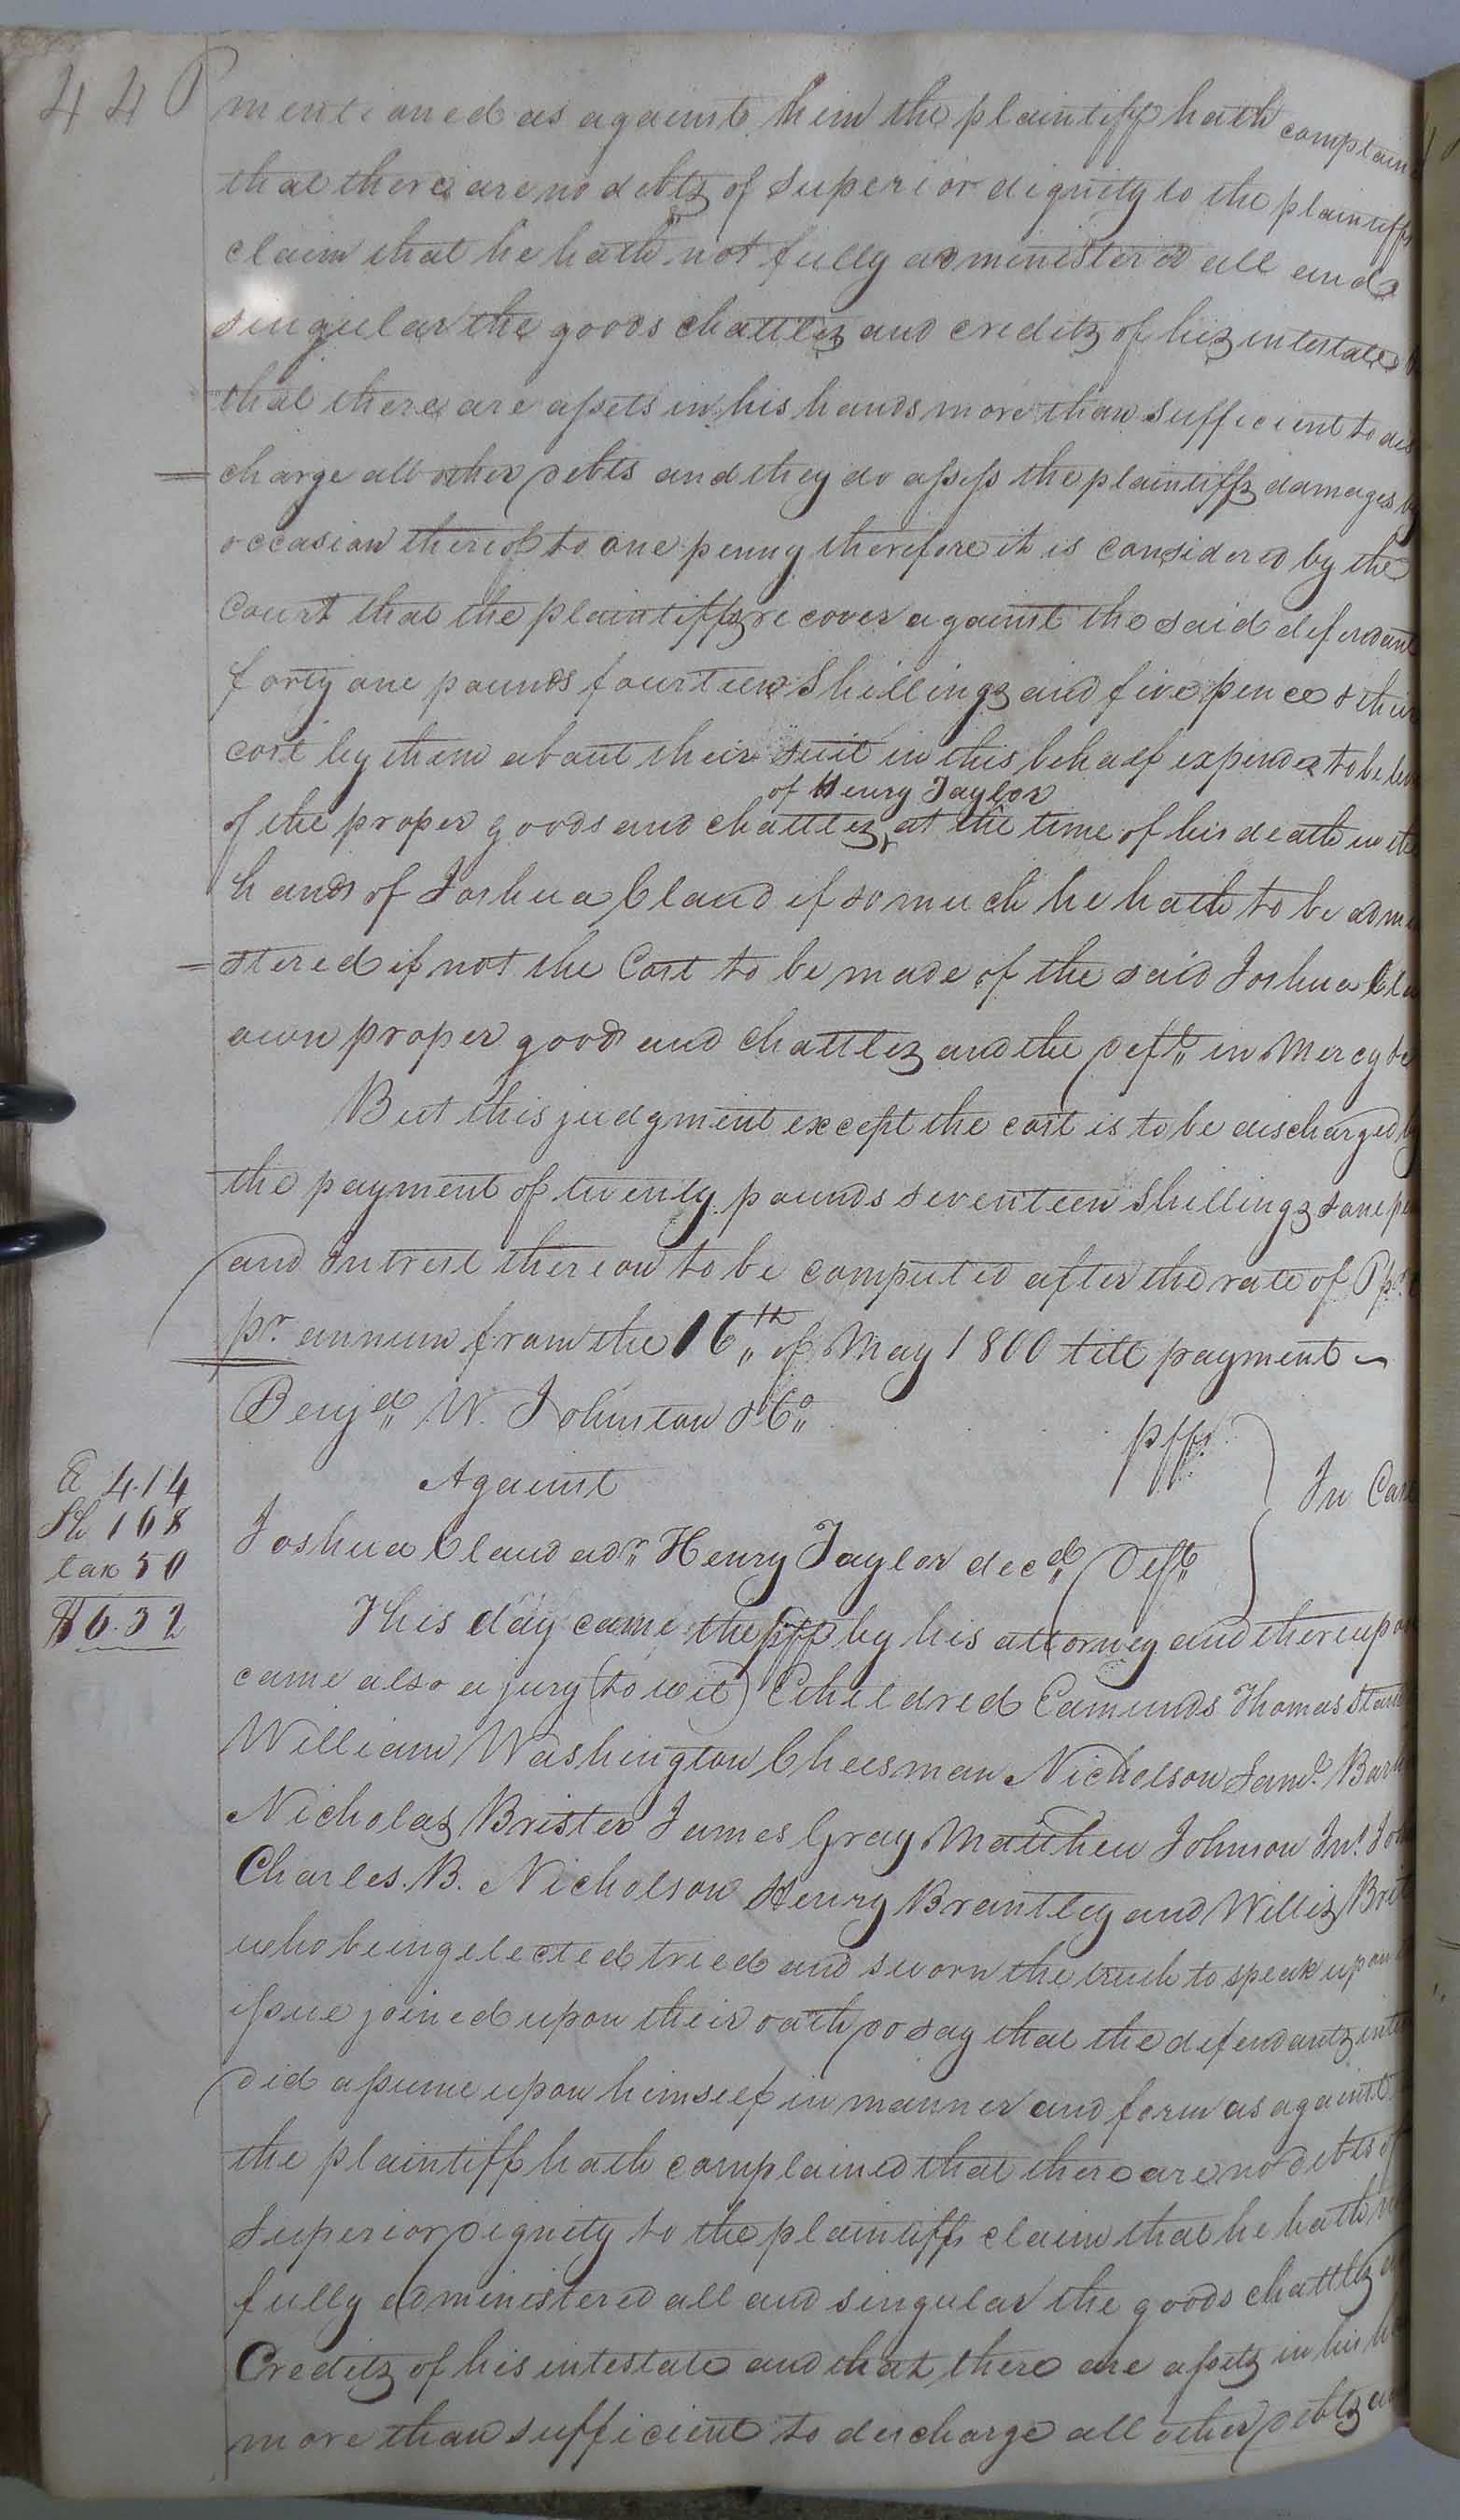 44
mentioned as against him the plaintiff hath complain
that there are no debts of Superior dignity to the plaintiffs
claim that he hath not fully administered all and
singular the goods chattles and credits of his intestate
that there are assets in his hands more than sufficient to dis
= charge all other debts and they do assess the plaintiffs damages by
occasion thereof to one penny therefore it is considered by the
Court that the plaintiffs recover against the said defendant
forty one pounds fourteen Shillings and five pence & their
cost by them about their suit in this behalf expended to be lev
of Henry Taylor
of the proper goods and chattles at the time of his death in the
hands of Joshua Claud if so much he hath to be admi
= stered if not the Cost to be made of the said Joshua Cla
own proper good and chattles and the Deft in Mercy &c
But this judgment except the cost is to be discharged by
the payment of twenty pounds seventeen Shillings & one pe
and Intrest thereon to be computed after the rate of
pr. annum from the 16th of May 1800 till payment
Benjd W. Johnston & Co pffs
Against In Cas
Joshua Claud adr Henry Taylor decd Deft
C 4.14
Sh 108
tax 50
$6.32
This day came the pff by his attorney and thereupon
came also a jury (to wit) Childred Edmunds Thomas
William Washington Cheesman Nicholson
Nicholas Brister James Gray Matthew Johnson Jnr.
Charles. B. Nicholson Henry Brantley and Willis
who being elected tried and sworn the truth to speak upon
issue joined upon their oath do say that the defendants inte
did assume upon himself in manner and form as against
the plaintiff hath complained that there are no debts of
Superior dignity to the plaintiffs claim that he hath n
fully administered all and singular the goods chattles
Credits of his intestate and that there are assets in his h
more than sufficient to discharge all other debts an